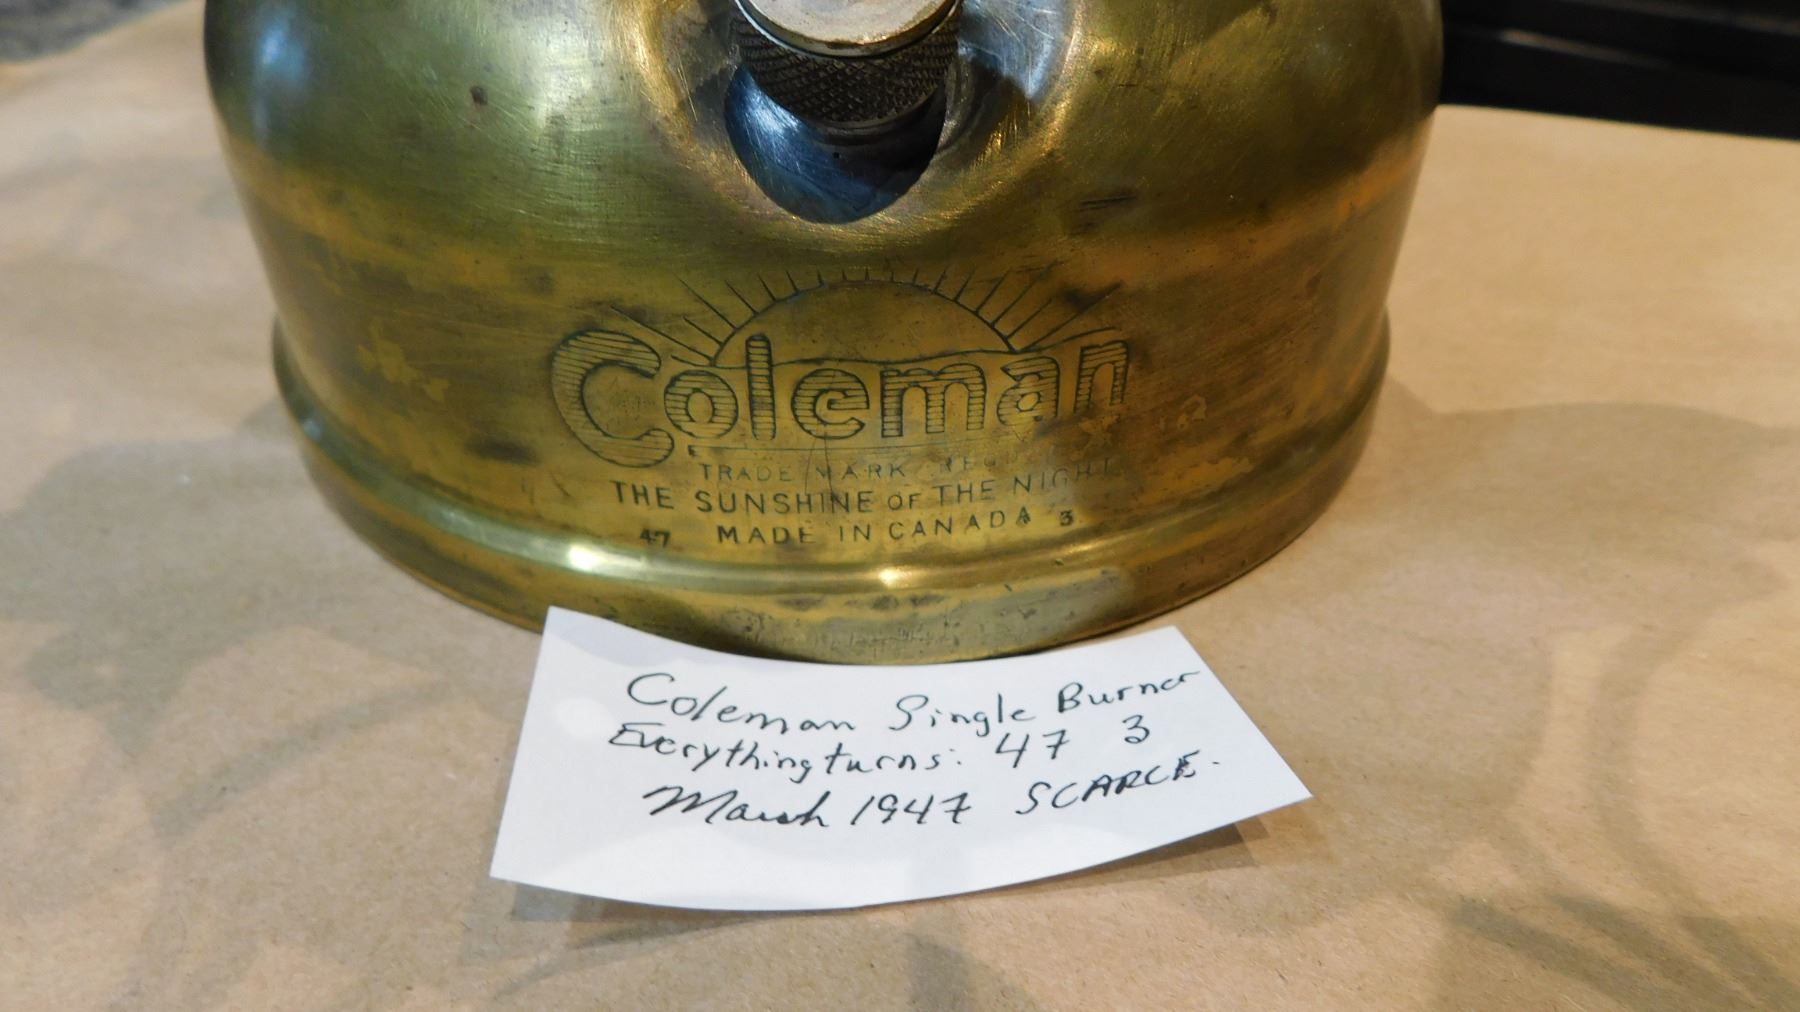 Coleman
TRADE MARK REG'D
THE SUNSHINE OF THE NIGHT
47 MADE IN CANADA 3
Coleman Single Burner
Everything turns: 47 3
March 1947 SCARCE.